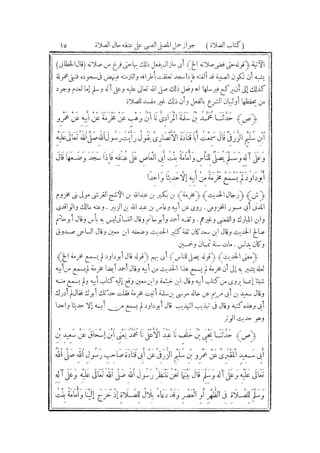 (كتاب الصلاة) جواز حمل المصلى الصبى على عنقه حال الصلاة ١٥
الآتية (قوله حتى قضى صلاته الخ) أى مازال يفعل ذلك بها حتى فرغ من صلاته (قال الخطابى)
يشبه أن تكون الصبية قد ألفته فإذا سجد تعلقت بأطرافه والتزمته فينهض من سجوده فتبقى محمولة
كذلك إلى أن يركع فيرسلها اه وفعل ذلك صلى الله تعالى عليه وعلى آله وسلم إما لعدم وجود
من يحفظها أو لبيان التشريع بالفعل وأن ذلك غير مفسد للصلاة
(ص) حدثنا محمد بن سلمة المرادى نا ابن وهب عن مخرمة عن أبيه عن عمرو
ابن سليم الزرقى قال سمعت أبا قتادة الأنصارى يقول رأيت رسول الله صلى الله تعالى عليه
وعلى آله وسلم يصلى للناس وأمامة بنت أبى العاص على عنقه فإذا سجد وضعها قال
أبو داود لم يسمع مخرمة من أبيه إلا حديثا واحدا
(ش) (رجال الحديث) (مخرمة) بن بكير بن عبد الله بن الأشج القرشى مولى بنى مخزوم
المدنى أبى مسور المخزومى. روى عن أبيه وعامر بن عبد الله بن الزبير. وعنه مالك والواقدى
وابن المبارك والقعنبى وغيرهم. وثقه أحمد وأبو حاتم وقال النسائى ليس به بأس وقال أبو حاتم
صالح الحديث وقال ابن سعد كان ثقة كثير الحديث وضعفه ابن معين وقال الساجى صدوق
وكان يدلس. مات سنة ثمان وخمسين
(معنى الحديث) (قوله يصلى للناس) أى بهم (قوله قال أبو داود لم يسمع مخرمة الخ)
لعله يشير به إلى أن مخرمة لم يسمع هذا الحديث من أبيه وقال أحمد أيضا مخرمة لم يسمع من أبيه
شيئا إنما يروى من كتاب أبيه وقال ابن خيثمة وابن معين وقع إليه كتاب أبيه ولم يسمع منه
وقال سعيد بن أبى مريم عن خاله موسى بن سلمة أتيت مخرمة فقلت حدثك أبوك فقال لم أدرك
أبى وهذه كتبه وقال فى تهذيب التهذيب قال أبو داود لم يسمع من أبيه إلا حديثا واحدا
وهو حديث الوتر
(ص) حدثنا يحيى بن خلف نا عبد الأعلى نا محمد يعنى ابن إسحاق عن سعيد بن
أبى سعيد المقبرى عن عمرو بن سليم الزرقى عن أبى قتادة صاحب رسول الله صلى الله
تعالى عليه وعلى آله وسلم قال بينما نحن ننتظر رسول الله صلى الله تعالى عليه وعلى آله
وسلم للصلاة فى الظهر أو العصر وقد دعاه بلال للصلاة إذ خرج إلينا وأمامة بنت